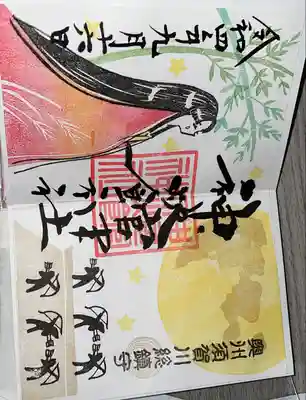 奥州須賀川総鎮守
神炊館神社
令和四年九月十六日